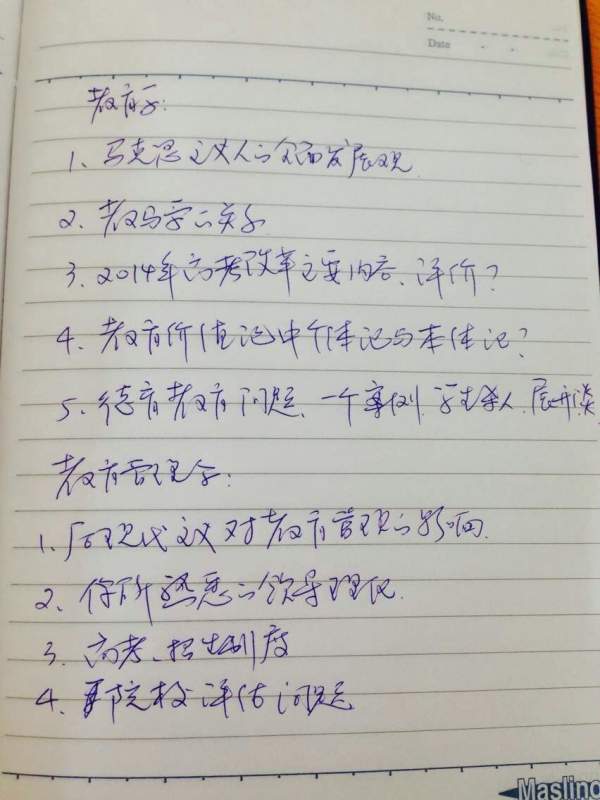 No.
Date
教育学：
1、马克思主义人的全面发展观
2、教与学的关系
3、2014年高考改革主要内容、评价？
4、教育价值论中个体论与本体论？
5、德育教育问题、一个事例，学生杀人，展开谈
教育管理学：
1、后现代主义对教育管理的影响.
2、你所熟悉的领导理论.
3、高考、招生制度
4、院校评估问题
Maslino